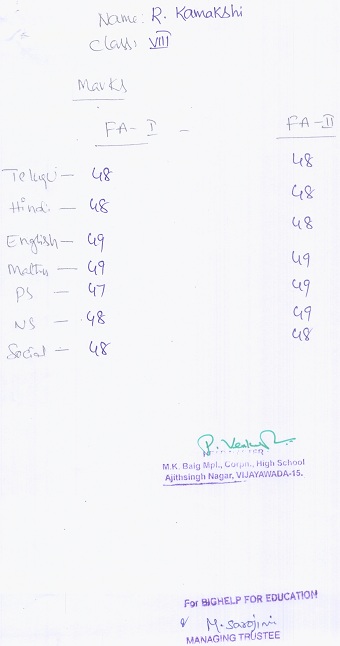 Name: R. Kamakshi
Class: VIII
Marks
FA-I - FA-II
Telugu - 48 48
Hindi - 48 48
English - 49 48
Maths - 49 49
PS - 47 49
NS - 48 49
Social - 48 48
M.K. Baig Mpl., Corpn., High School
Ajithsingh Nagar, VIJAYAWADA-15.
For BIGHELP FOR EDUCATION
M. Sarojini
MANAGING TRUSTEE